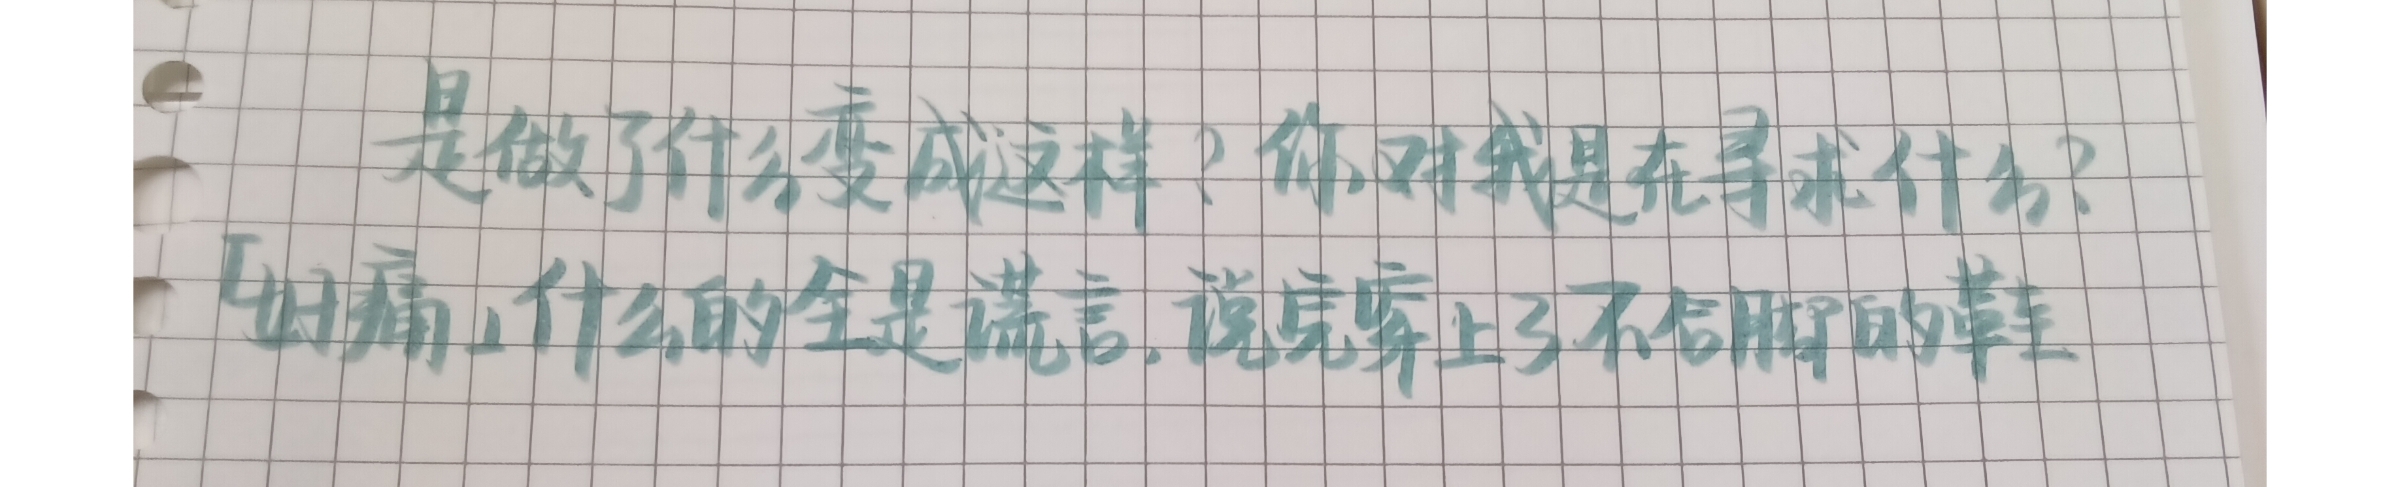 是做了什么变成这样？你对我是在寻求什么？
「好痛」什么的全是谎言，说完穿上了不合脚的鞋